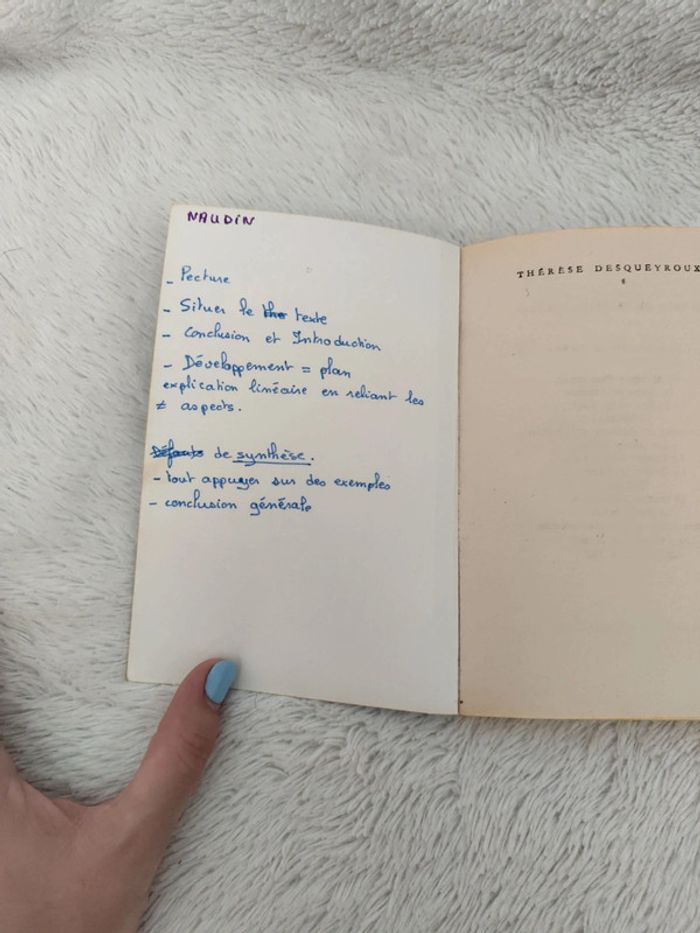 NAUDIN
- Lecture
- Situer le the texte
- Conclusion et Introduction
- Développement = plan
explication linéaire en reliant les
≠ aspects.
Défauts de synthèse.
- tout appuyer sur des exemples
- conclusion générale
THÉRÈSE DESQUEYROUX